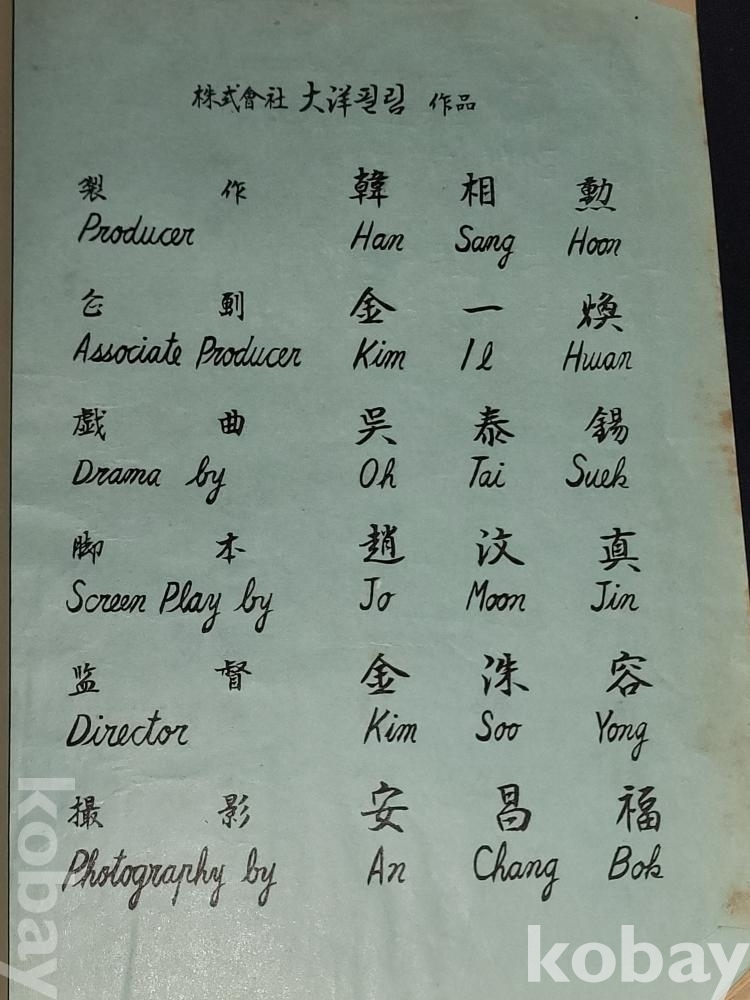 株式會社 大洋필림 作品
製作 韓相勳
Producer Han Sang Hoon
企劃 金一煥
Associate Producer Kim Il Hwan
戲曲 吳泰錫
Drama by Oh Tai Suek
脚本 趙汶真
Screen Play by Jo Moon Jin
監督 金洙容
Director Kim Soo Yong
撮影 安昌福
Photography by An Chang Bok
kobay
kobay